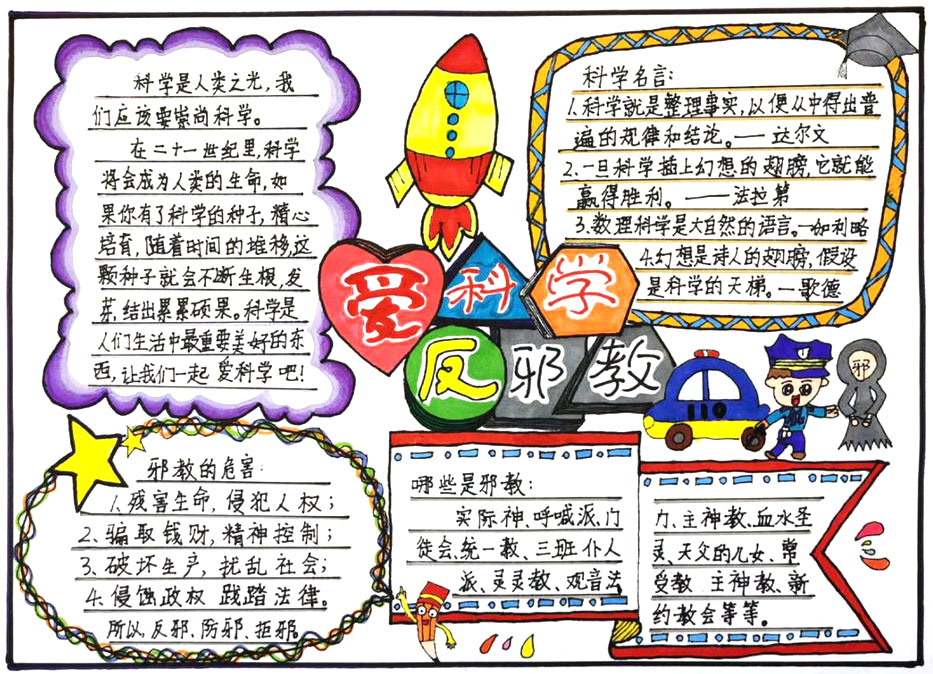 科学是人类之光,我
们应该要崇尚科学。
在二十一世纪里,科学
将会成为人类的生命,如
果你有了科学的种子,精心
培育,随着时间的堆移,这
颗种子就会不断生根,发
芽,结出累累硕果。科学是
人们生活中最重要美好的东
西,让我们一起爱科学吧!
科学名言:
1.科学就是整理事实,以便从中得出普
遍的规律和结论。——达尔文
2.一旦科学插上幻想的翅膀,它就能
赢得胜利。——法拉第
3.数理科学是大自然的语言。—如利略
4.幻想是诗人的翅膀,假设
是科学的天梯。—歌德
爱科学
反邪教
110
邪
邪教的危害:
1.残害生命,侵犯人权;
2.骗取钱财,精神控制;
3.破坏生产,扰乱社会;
4.侵蚀政权 践踏法律。
所以,反邪、防邪、拒邪
哪些是邪教:
实际神、呼喊派、门
徒会、统一教、三班仆人
派、灵灵教、观音法
力、主神教、血水圣
灵、天父的儿女、常
受教 主神教、新
约教会等等。